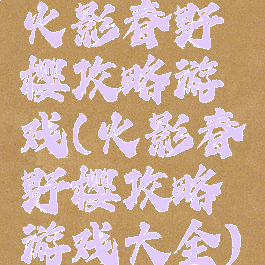 火影春野
樱攻略游
戏(火影春
野樱攻略
游戏大全)